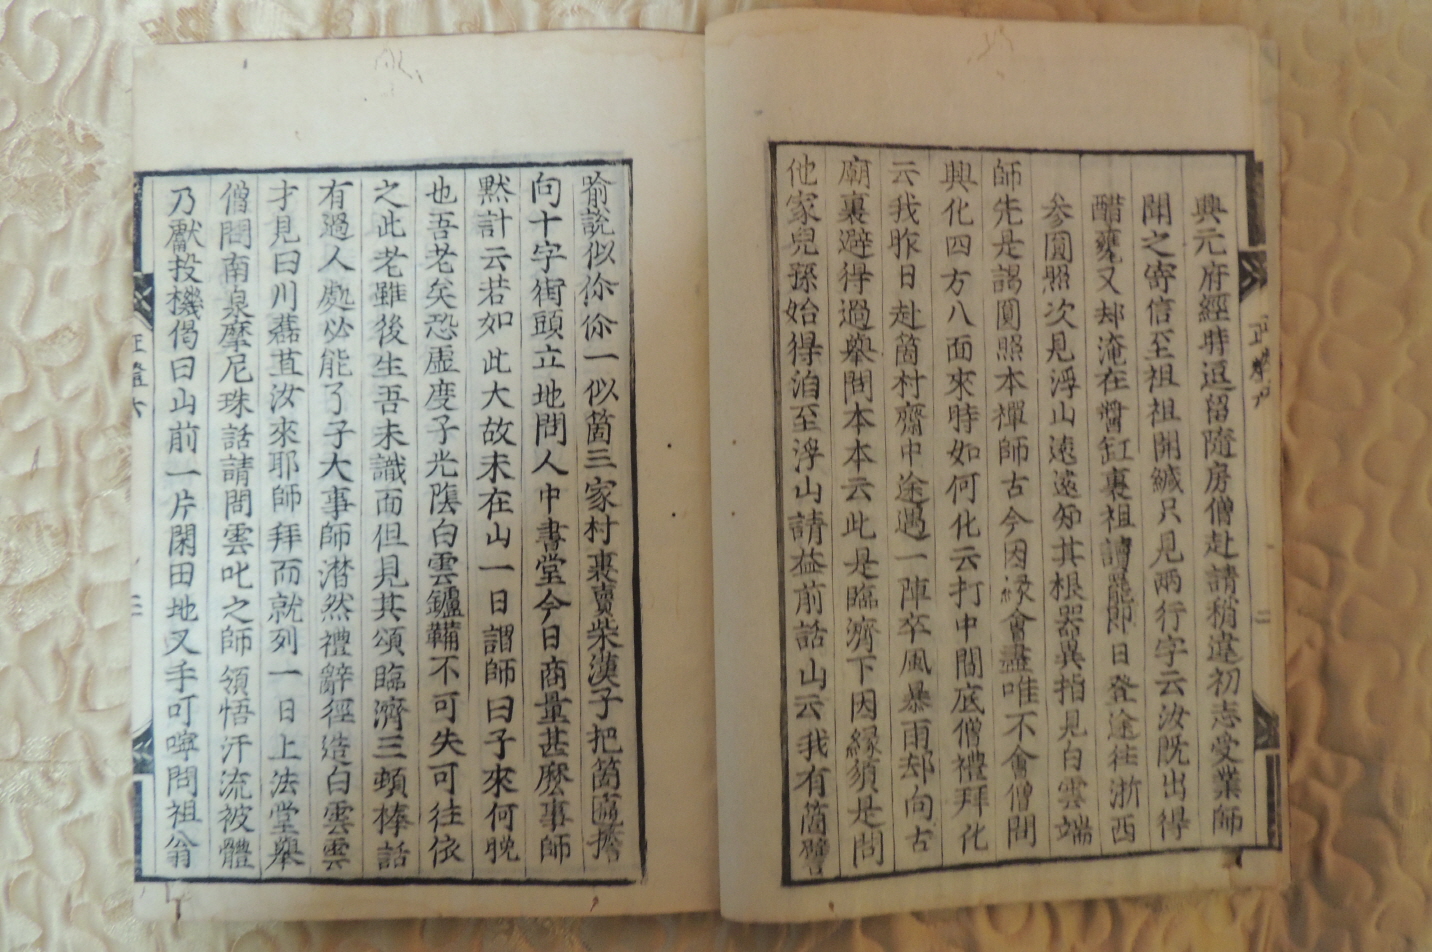 興元府經時逗留隨房僧赴請稍違初志受業師
聞之寄信至祖祖開緘只見兩行字云汝旣出得
醋甕又却淹在醬缸裏祖讀罷即日登途往浙西
參圓照次見浮山遠遠知其根器異指見白雲端
師先是謁圓照本禪師古今因緣會盡唯不會僧問
興化四方八面來時如何化云打中間底僧禮拜化
云我昨日赴箇村齋中途遇一陣卒風暴雨却向古
廟裏避得過擧問本本云此是臨濟下因緣須是問
他家兒孫始得洎至浮山請益前話山云我有箇譬
喻說似你你一似箇三家村裏賣柴漢子把箇匾擔
向十字街頭立地問人中書堂今日商量甚麽事師
黙計云若如此大故未在山一日謂師曰子來何晚
也吾老矣恐虛度子光隂白雲鑪鞴不可失可往依
之此老雖後生吾未識面但見其頌臨濟三頓棒話
有過人處必能了子大事師潛然禮辭徑造白雲雲
才見曰川藞苴汝來耶師拜而就列一日上法堂擧
僧問南泉摩尼珠話請問雲叱之師領悟汗流被體
乃獻投機偈曰山前一片閑田地叉手叮嚀問祖翁